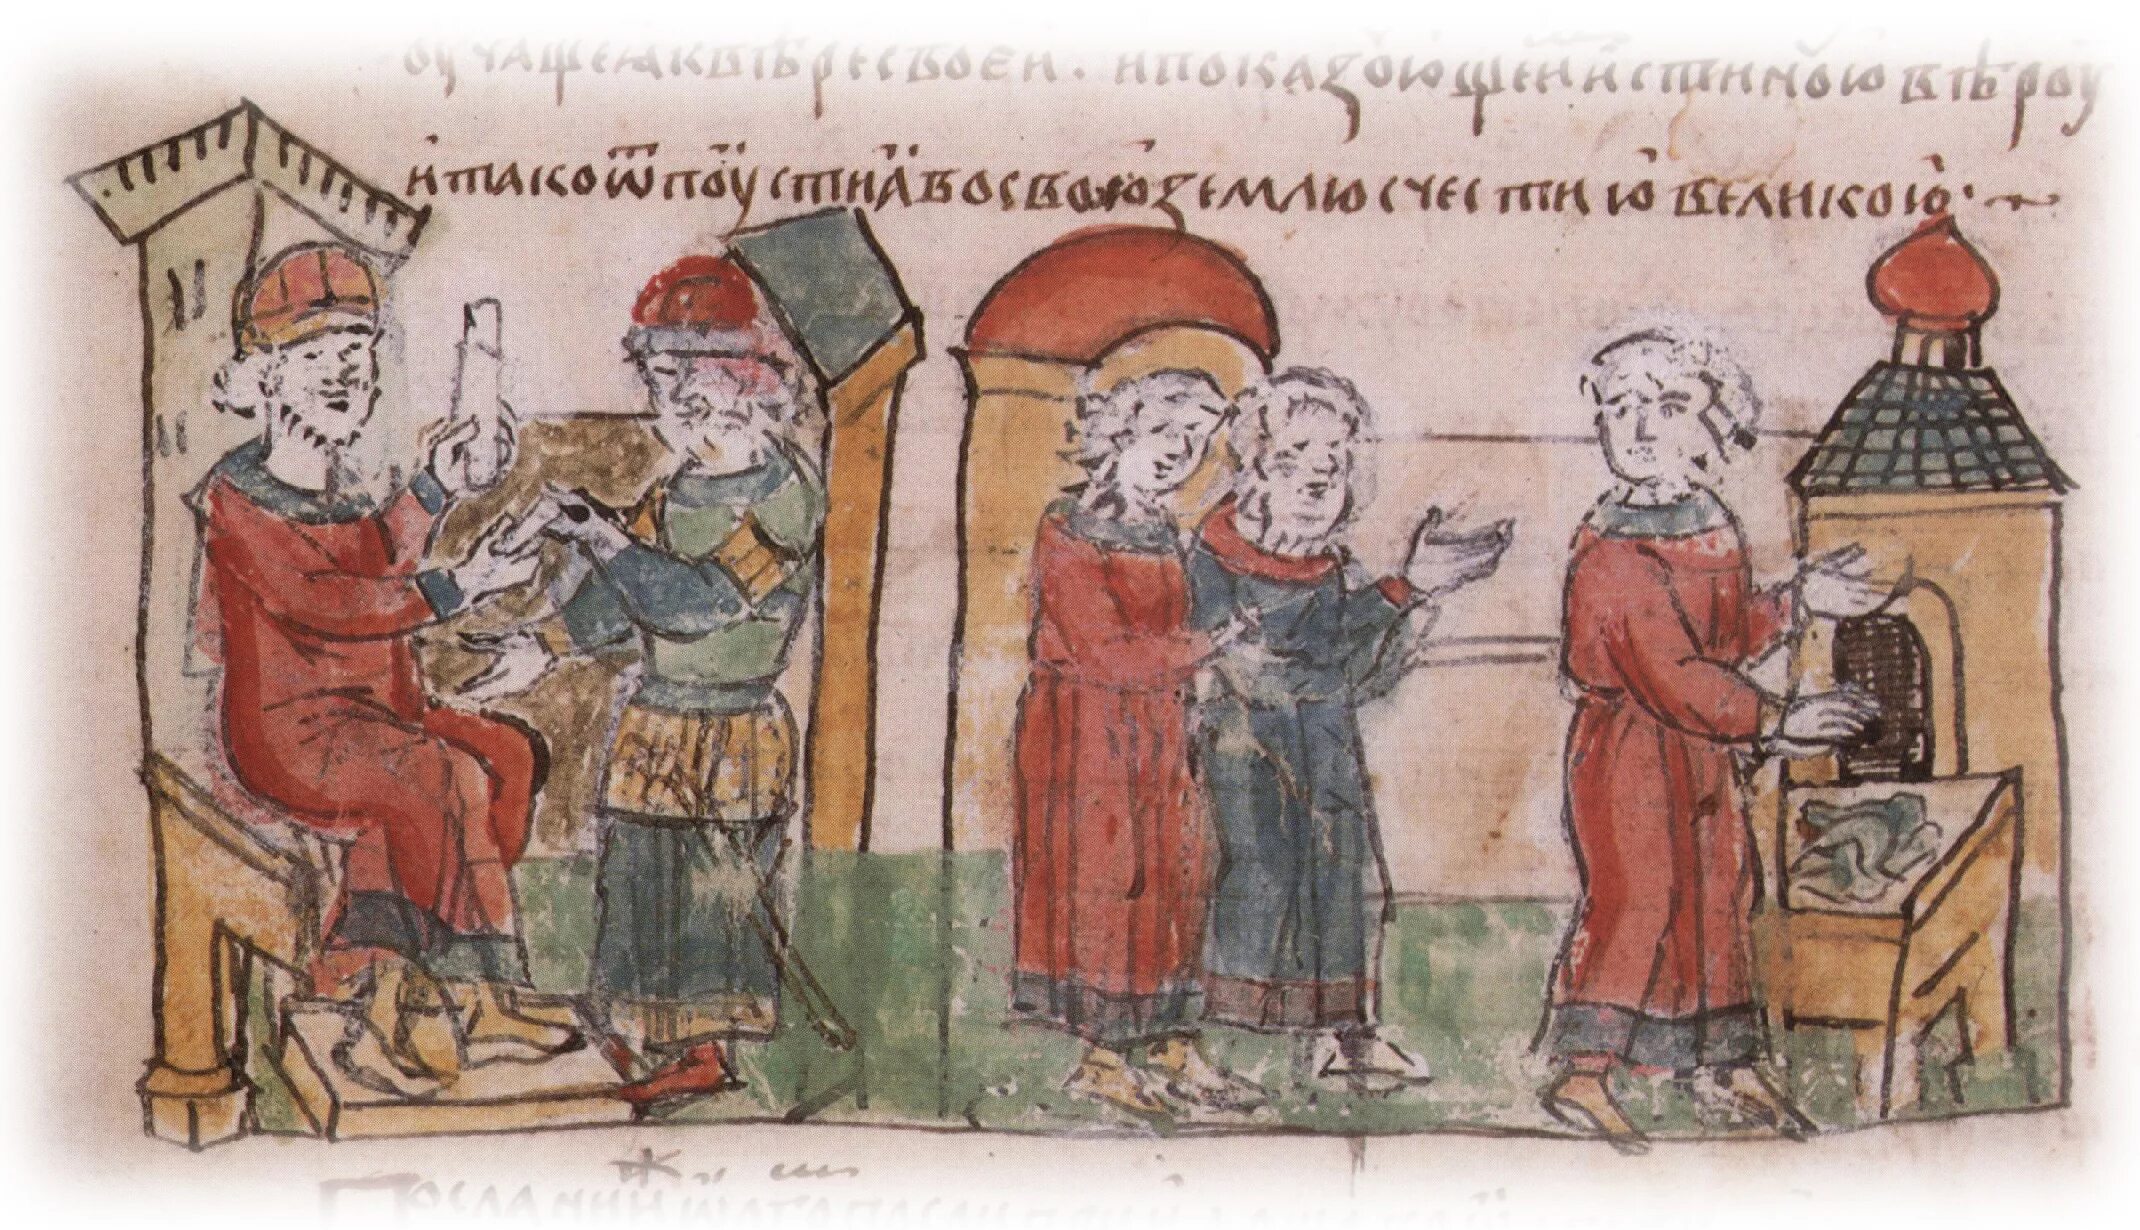 оучащеꙗ к вѣре своеи · и показоующе и истинноую вѣроу
и тако ѿпоусти ꙗ во свою землю с честию великою ·